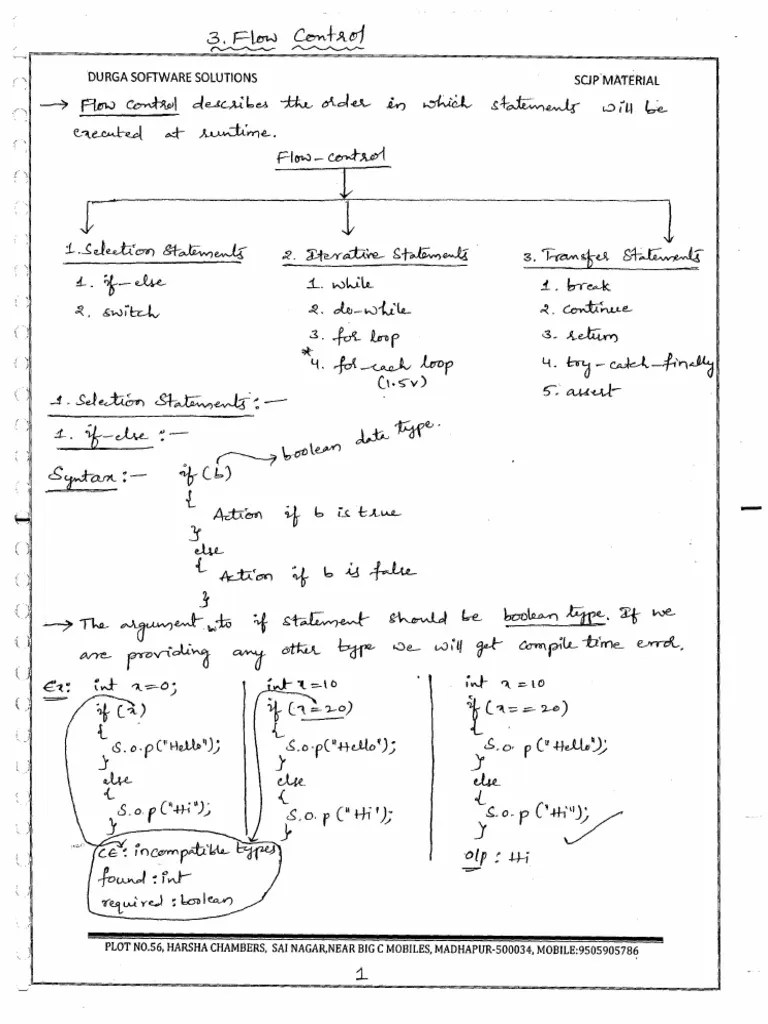 3. Flow Control
DURGA SOFTWARE SOLUTIONS SCJP MATERIAL
→ Flow control describes the order in which statements will be
executed at runtime.
Flow-control
1. Selection Statements 2. Iterative Statements 3. Transfer Statements
1. if-else 1. while 1. break
2. switch 2. do-while 2. continue
3. for loop 3. return
* 4. for-each loop 4. try-catch-finally
(1.5v) 5. assert
1. Selection Statements:-
1. if-else :-
Syntax:- if (b) → boolean data type.
{
Action if b is true
}
else
{
Action if b is false
}
→ The argument to if statement should be boolean type. If we
are providing any other type we will get compile time error.
Ex: int x=0; int x=10 int x=10
if (x) if (x=20) if (x==20)
{ { {
S.o.p("Hello"); S.o.p("Hello"); S.o.p("Hello");
} } }
else else else
{ { {
S.o.p("Hi"); S.o.p("Hi"); S.o.p("Hi");
} } }
CE: incompatible types o/p : Hi
found : int
required : boolean
PLOT NO.56, HARSHA CHAMBERS, SAI NAGAR,NEAR BIG C MOBILES, MADHAPUR-500034, MOBILE:9505905786
1